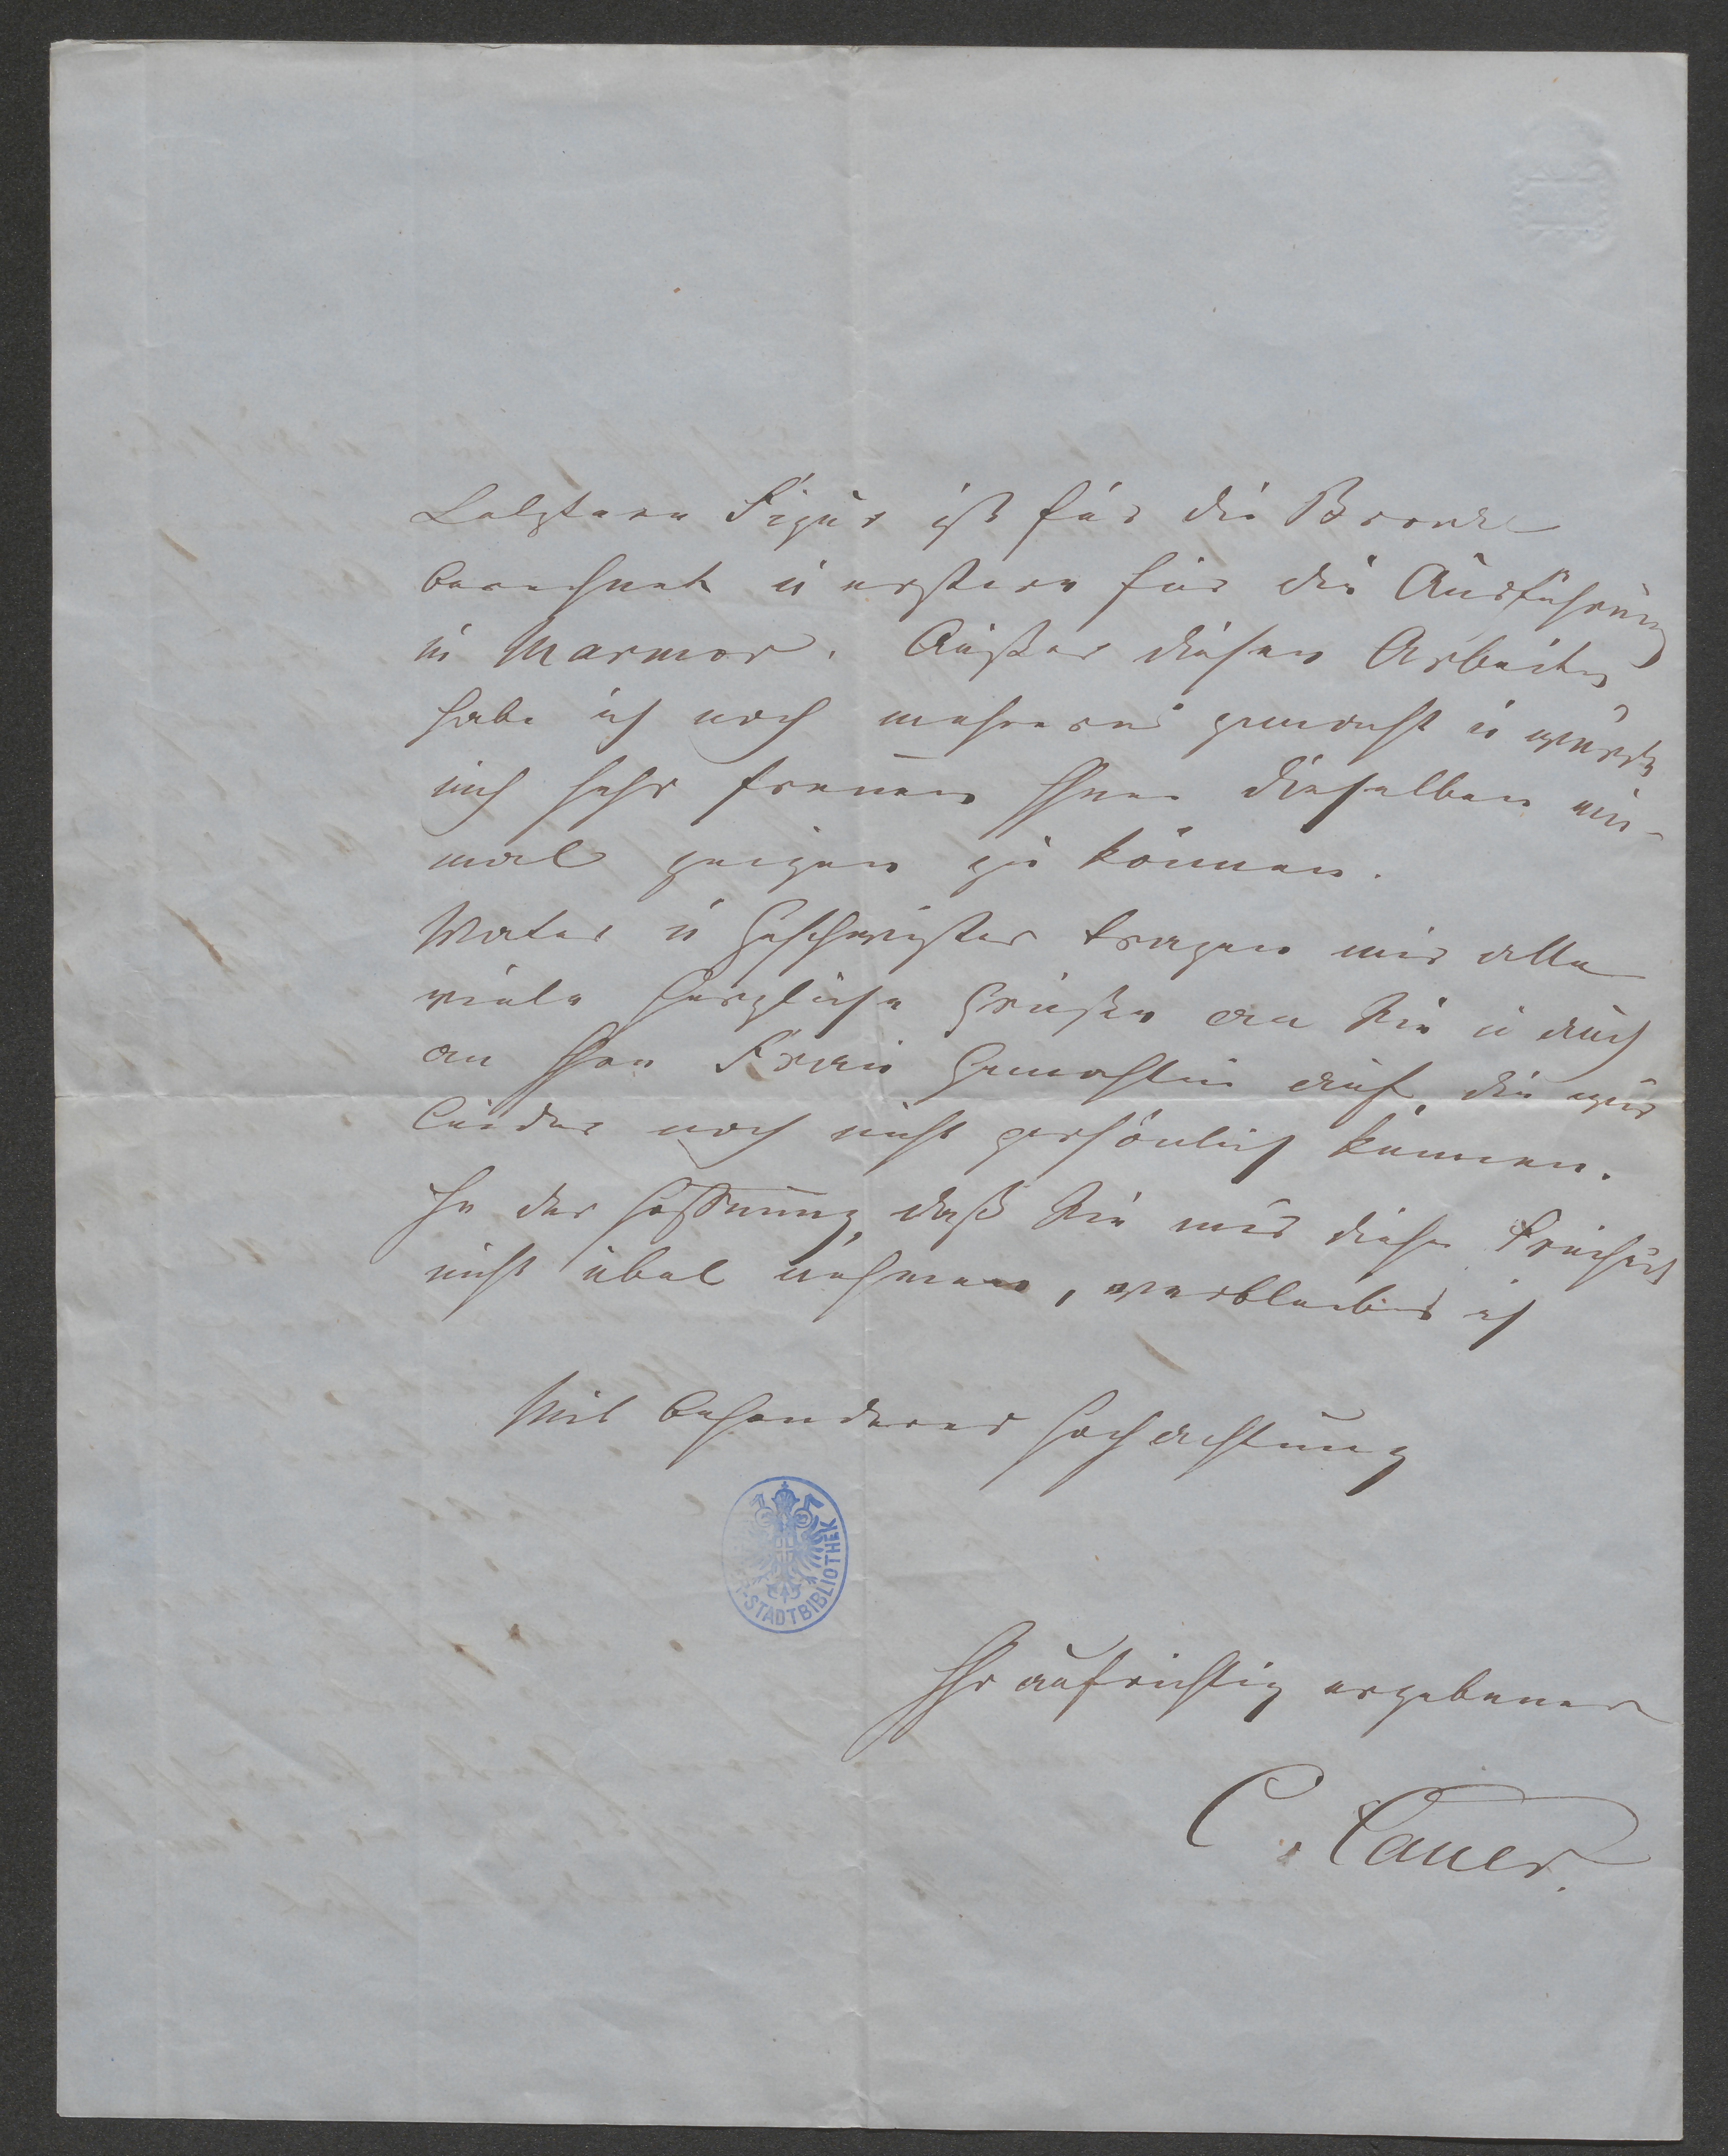 Letztere Figur ist für die Bronze
berechnet u erstere für die Ausführung
in Marmor. Außer diesen Arbeiten
habe ich noch mehrere gemacht u würde
mich sehr freuen Ihnen dieselben ein-
mal zeigen zu können.
Vater u Geschwister tragen mir alle
viele herzliche Grüße an Sie u auch
an Ihre Frau Gemahlin auf, die wir
leider noch nicht persönlich kennen.
In der Hoffnung, daß Sie mir diese Freiheit
nicht übel nehmen, verbleibe ich
Mit besonderer Hochachtung
STADTBIBLIOTHEK
Ihr aufrichtig ergebener
C. Cauer.